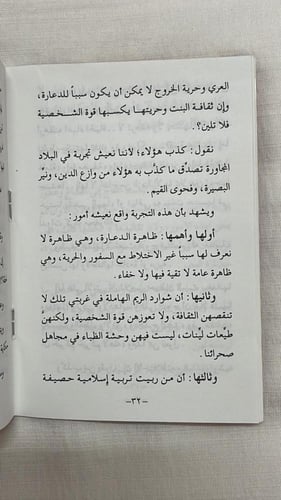 العري وحرية الخروج لا يمكن أن يكون سبباً للدعارة،
وإن ثقافة البنت وحريتها يكسبها قوة الشخصية
فلا تلين؟.
نقول: كذب هؤلاء؛ لأننا نعيش تجربة في البلاد
المجاورة تصدِّق ما كذَّب به هؤلاء من وازع الدين، ونيِّر
البصيرة، وفحوى القيم.
ويشهد بأن هذه التجربة واقع نعيشه أمور:
أولها وأهمها: ظاهرة الدعارة، وهي ظاهرة لا
نعرف لها سبباً غير الاختلاط مع السفور والحرية، وهي
ظاهرة عامة لا تقية فيها ولا خفاء.
وثانيها: أن شوارد الريم الهاملة في غربتي تلك لا
تنقصهن الثقافة، ولا تعوزهن قوة الشخصية، ولكنهنَّ
طيِّعات ليِّنات، ليست فيهن وحشة الظباء في مجاهل
صحرائنا.
وثالثها: أن من ربيت تربية إسلامية حصيفة
-٣٢-